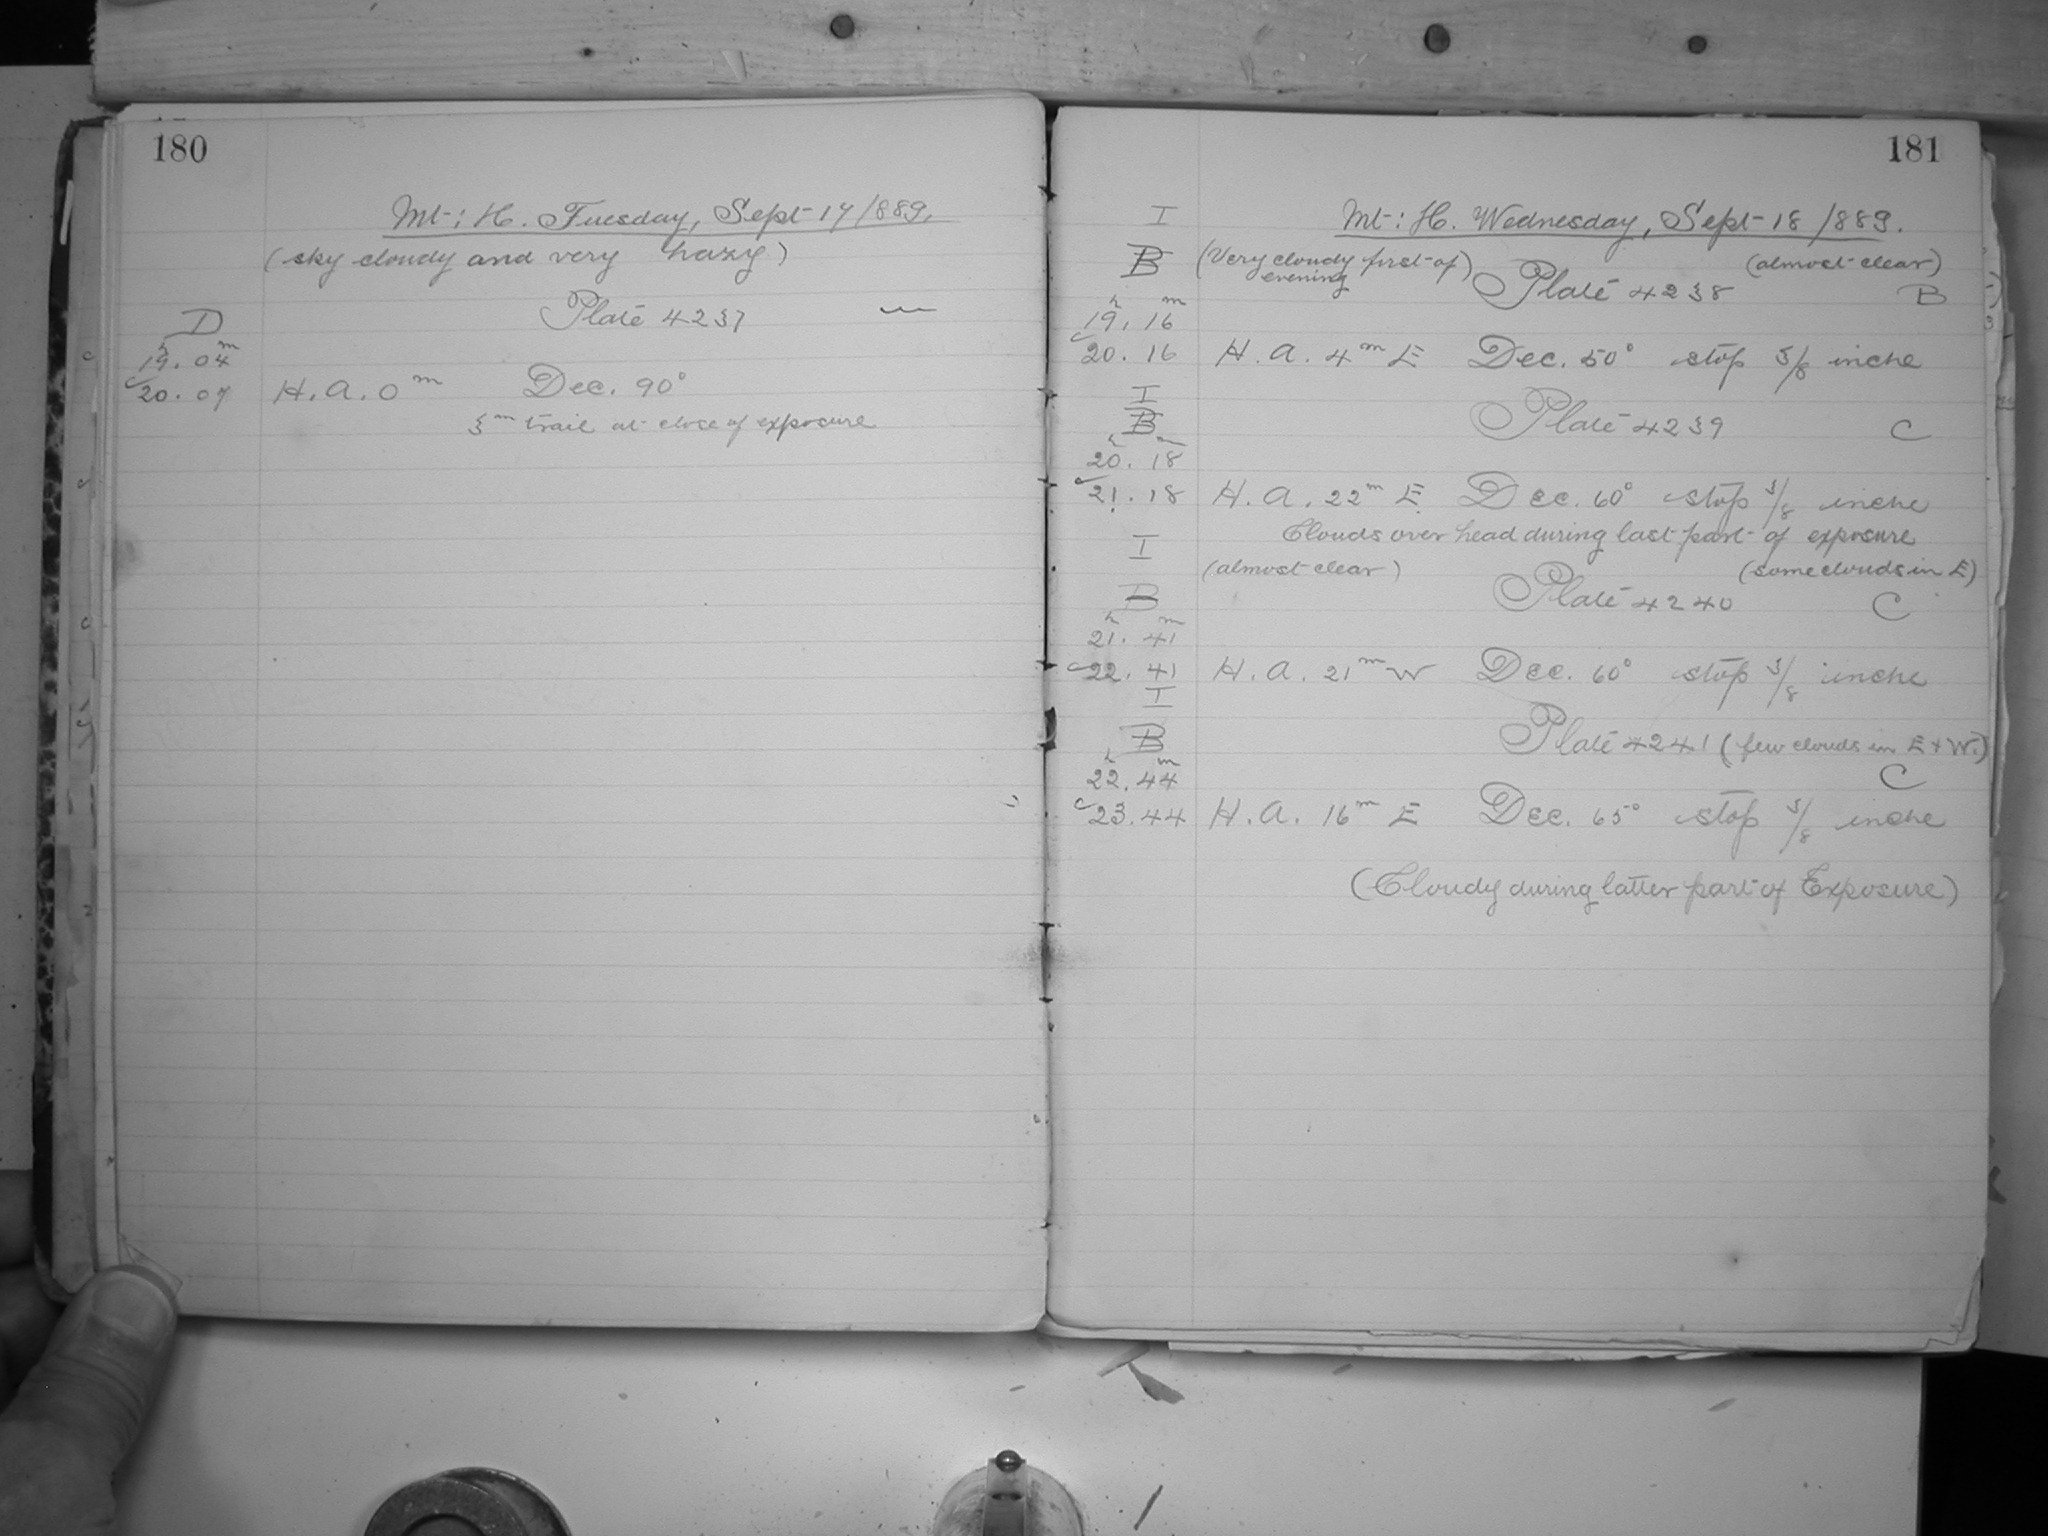 180
Mt: H. Tuesday, Sept 17/889.
(sky cloudy and very hazy)
Plate 4237
D
h m
19.04
20.07 H. A. 0m Dec. 90°
3m trail at close of exposure
181
I Mt: H. Wednesday, Sept 18/889.
B (Very cloudy first of evening) (almost clear)
Plate 4238 B
h m
19.16
20.16 H. A. 4m E Dec. 50° stop 3/8 inche
I
B Plate 4239 C
h m
20.18
21.18 H. A. 22m E Dec. 60° stop 3/8 inche
Clouds over head during last part of exposure
I
(almost clear) (some clouds in E)
B Plate 4240 C
h m
21.41
22.41 H. A. 21m W Dec. 60° stop 3/8 inche
I
B Plate 4241 (few clouds in E + W.)
h m C
22.44
23.44 H. A. 16m E Dec. 65° stop 3/8 inche
(Cloudy during latter part of Exposure)